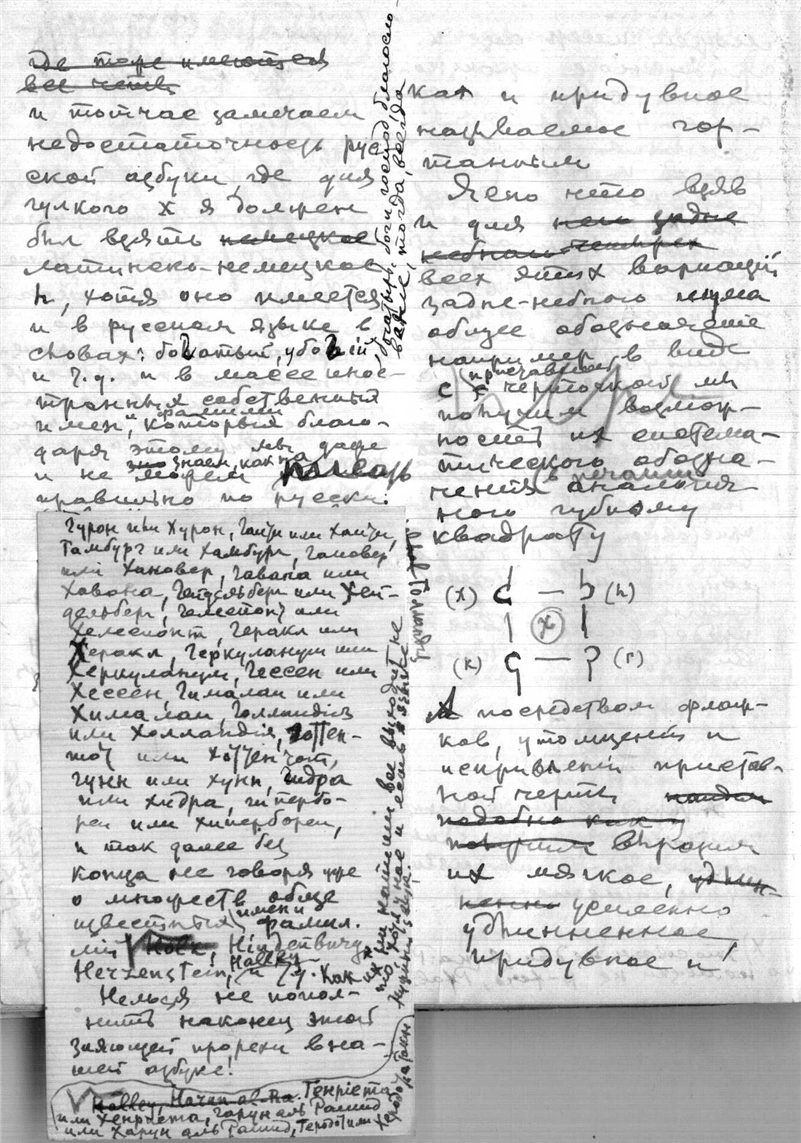 где тоже имеются
все четы
и тотчас замечаем
недостаточность рус
ской азбуки, где для
гулкого х я должен
был взять немецкое
латинско-немецкое
h, хотя оно имеется
и в русском языке в
словах: боhатый, убоhiй
и т.д. и в массе инос-
транных собственных
имен, фамилии которыя благо-
даря этому мы даже
и не можем знаем, как на писать
правильно по русски:
Гурон или Хурон, Гаити или Хаити,
Гамбург или Хамбург, Гановер
или Хановер, Гавана или
Хавана, Гейдельберг или Хей-
дельберг, Гелеспонт или
Хелеспонт, Геракл или
Херакл, Геркуланум или
Херкуланум, Гессен или
Хессен, Гималаи или
Хималаи, Голландiя
или Холландiя, Готтен-
тот или Хоттентот,
гунн или хунн, гидра
или хидра, гипербо-
реи или хипербореи,
и так далее без
конца не говоря уже
о множестве обще
известных имен и фамил.
Hindenburg
Herzenstein, Halley и т.д. Как
Нельзя не попол-
нить наконец этой
зияющей прорехи в на-
шей азбуке!
Halley, Harun al Ra. Генрiета
или Хенриета, Гарун аль Рашид
или Харун аль Рашид, Геродот или
богатырь, боги, господь, благосло-
важне, тогда, всегда
как и придувное
называемое гор-
танным
Ясно что взяв
и для него задне
небного четырех
всех этих вариацiй
задне-небного шума
общее обозначенiе
например в виде
с приставной черточкой мы
получим возмож-
ность их система-
тического обозна-
чения в печати аналогич-
ного губному
квадрату
(х) (h)
(х)
(к) (г)
А посредством флаж-
ков, утолщенiй и
искривленiй пристав-
ной черты
подобно как
получим варiации
их мягкое, удлин-
ненно усиленно
удлиненное
придувное и